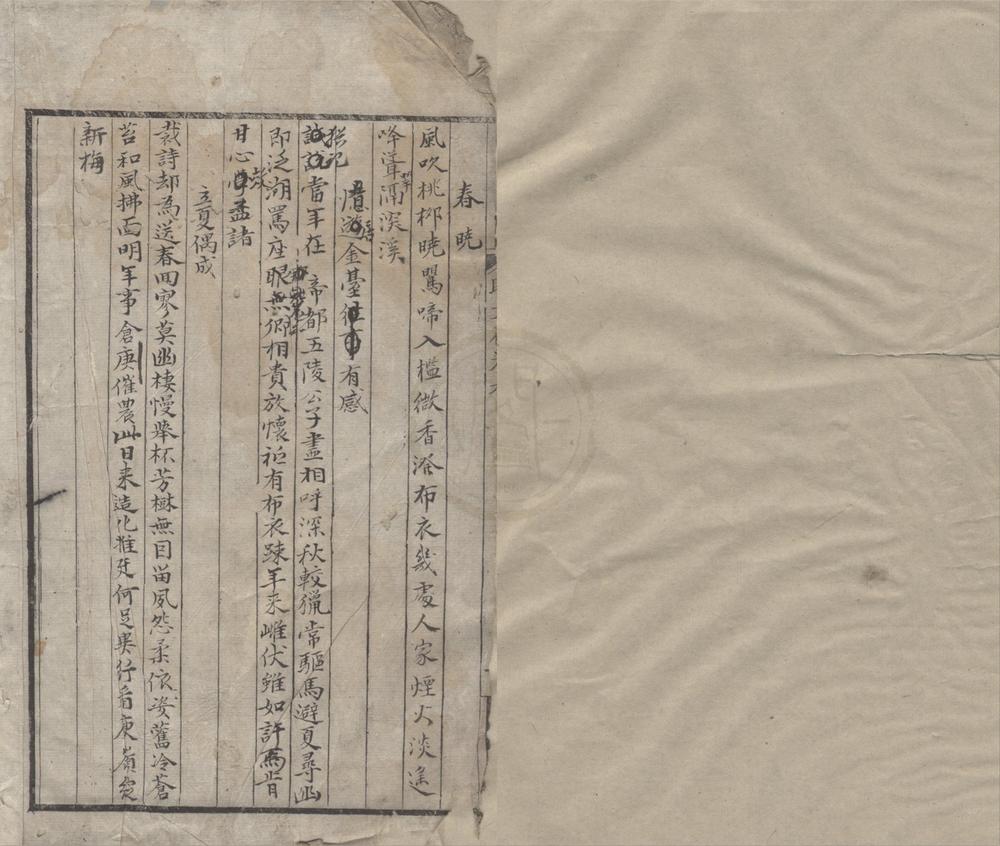 春曉
風吹桃柳曉鶯啼入檻微香滲布衣幾處人家煙火淡遙
峰聳翠滴深溪
憶遊金臺有感
猶記當年在帝都五陵公子盡相呼深秋較獵常驅馬避夏尋幽
即泛湖罵座眼無卿相貴放懷祗有布衣踈年來雌伏雖如許焉肯
甘心孟諸
立夏偶成
裁詩却為送春回寥莫幽棲慢舉杯芳樹無因留夙怨柔依姿舊冷蒼
苔和風拂面明年事倉庚催農此日來造化推迁何足異行看庾嶺定
新梅